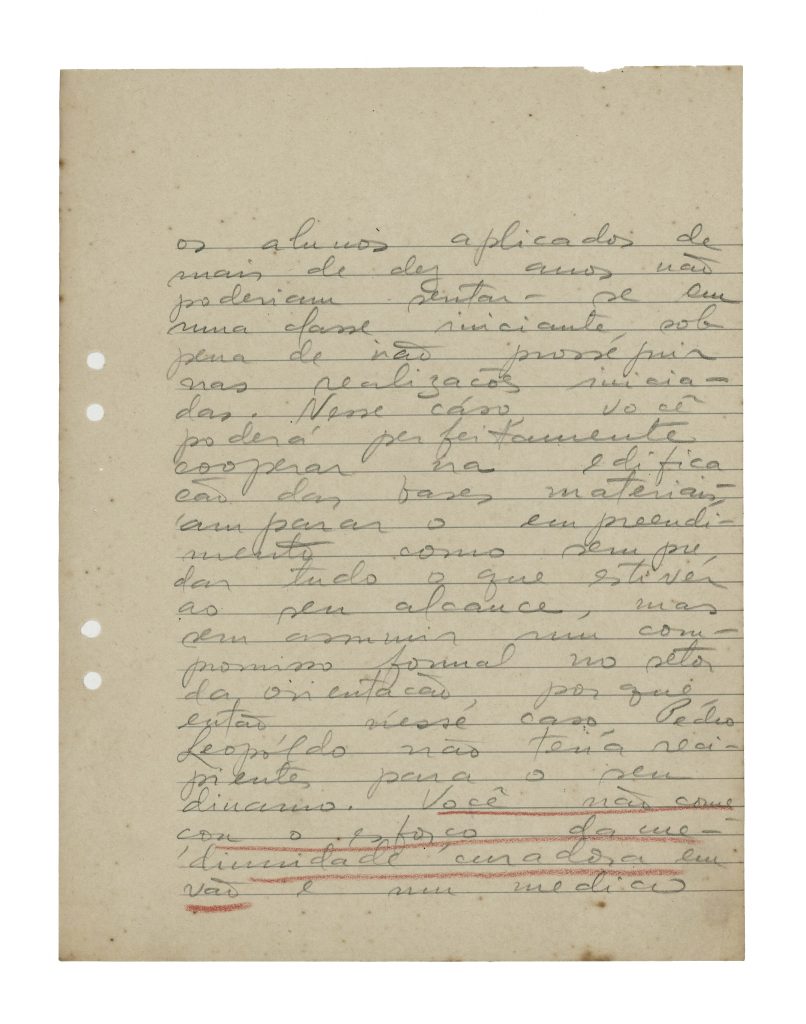 os alunos aplicados de
mais de dez anos não
poderiam sentar-se em
uma classe iniciante, sob
pena de não prosseguir
nas realizações inicia-
das. Nesse caso, você
poderá perfeitamente
cooperar na edifica
ção das bases materiais,
amparar o empreendi-
mento como sempre,
dar tudo o que estiver
ao seu alcance, mas
sem assumir um com-
promisso formal no setor
da orientação, porque,
então nesse caso Pedro
Leopoldo não teria reci-
pientes para o seu
dinamo. Você não come
çou o esforço da me-
diunidade curadora em
vão e um medico